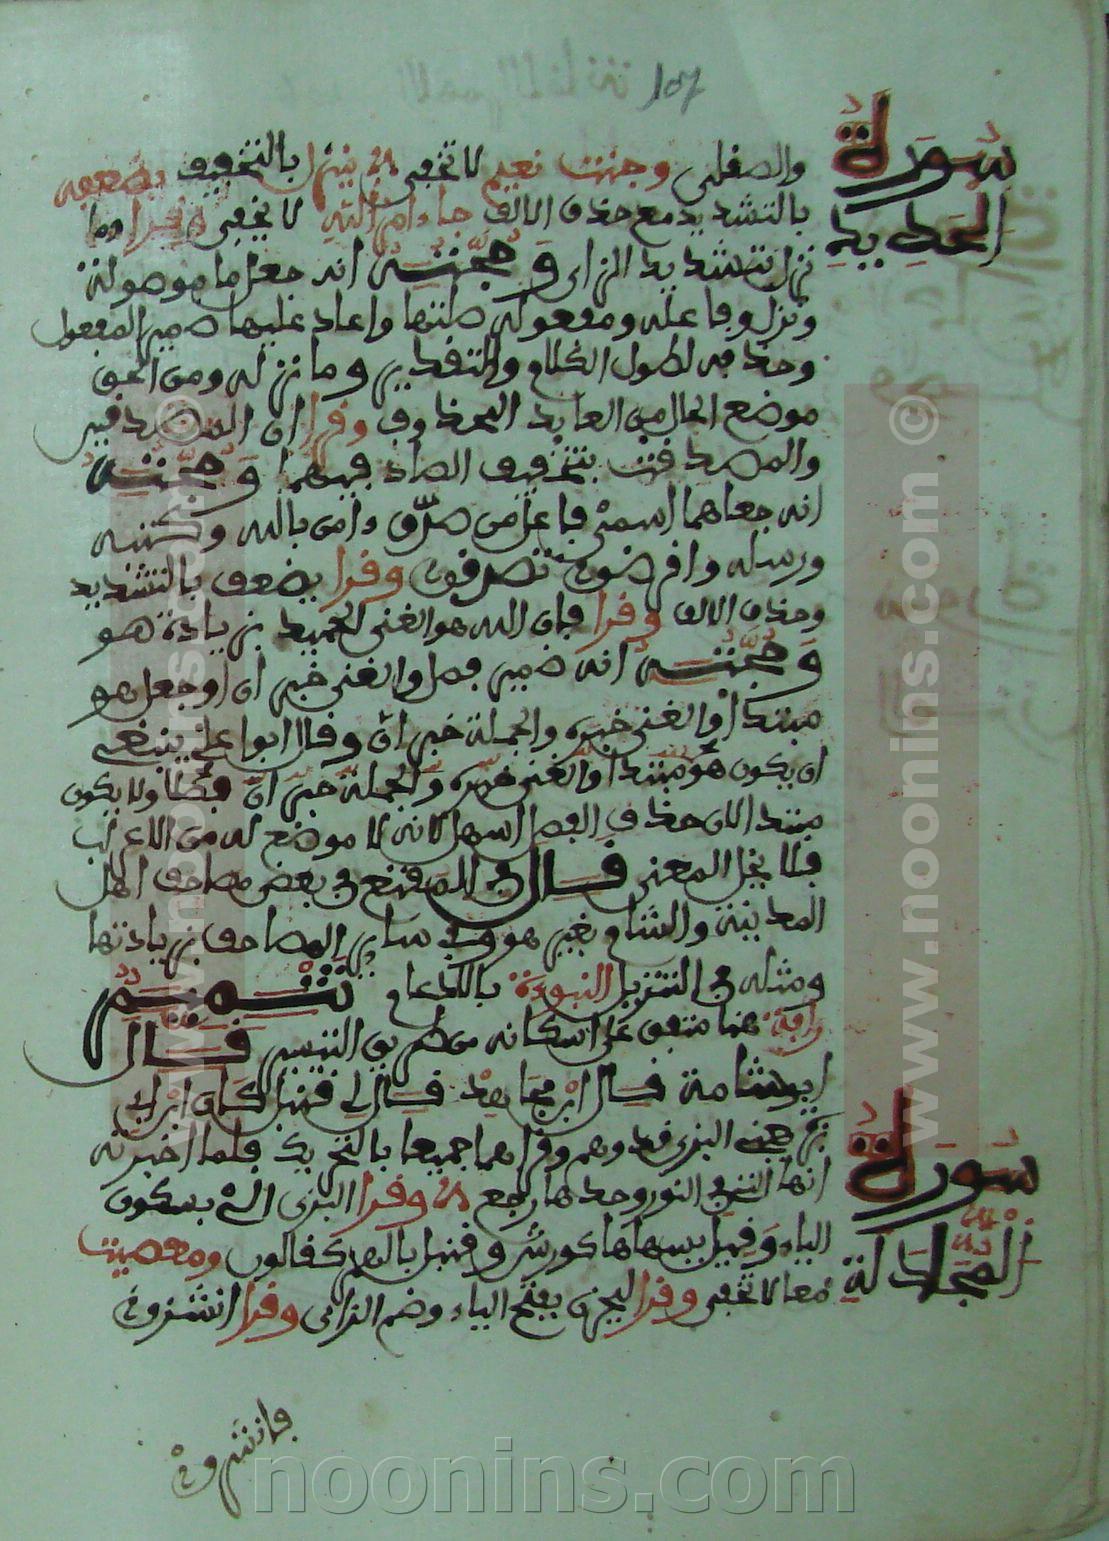 107
سورة
الحديد
والصقلي وجنت نعيم لا تخفى ينزل بالتخفيف يضعفه
بالتشديد مع حذف الالف جا وامر الله لا يخفى وقرا وما
نزل بتشديد الزاي وحجته انه جعل ما موصولة
ونزل وفاعله ومفعوله صلتها واعاد عليها ضمير المفعول
وحذفه لطول الكلام والتقدير وما نزله ومن الحق
موضع الحال من العايد المحذوف وقرا ان المصدقين
والمصدقت بتخفيف الصاد فيهما وحجته
انه جعلهما اسمي فاعل من صدق ءامن بالله وكتبه
ورسله واقرضوا وقرا يضعف بالتشديد
وحذف الالف وقرا فان الله هو الغني الحميد بزيادة هو
وحجته انه ضمير فصل والغني خبر ان او جعل هو
مبتدأ والغني خبره والجملة خبر ان وقال ابو علي ينبغي
ان يكون هو مبتدأ والغني خبره والجملة خبر ان ولا يكون
مبتدا لان حذف الفصل اسهل لانه لا موضع له من الاعراب
فلا يخل المعنى قال في المقنع في بعض مصاحف اهل
المدينة والشام بغير هو وفي ساير المصاحف بزيادتها
ومثله في التنزيل النبوءة بالادغام تتميم
رافة هنا متفق على اسكانه من طريق التيسير قال
ابو شامة قال ابن مجاهد قال لي قنبل كان ابن ابي
بزة البزي قد وهم وقراهما جميعا بالتحريك فلما اخبرته
انها الفتح في النور وحدها رجع وقرا البزي الئ بسكون
الياء وقنبل بالهمز كقالون ومعصيت
سورة
المجادلة
معا لا تخفى وقرا ليحزن بفتح الياء وضم الزاي وقرا انشزوا
فانشزوا
www.noonins.com ©
www.noonins.com ©
noonins.com